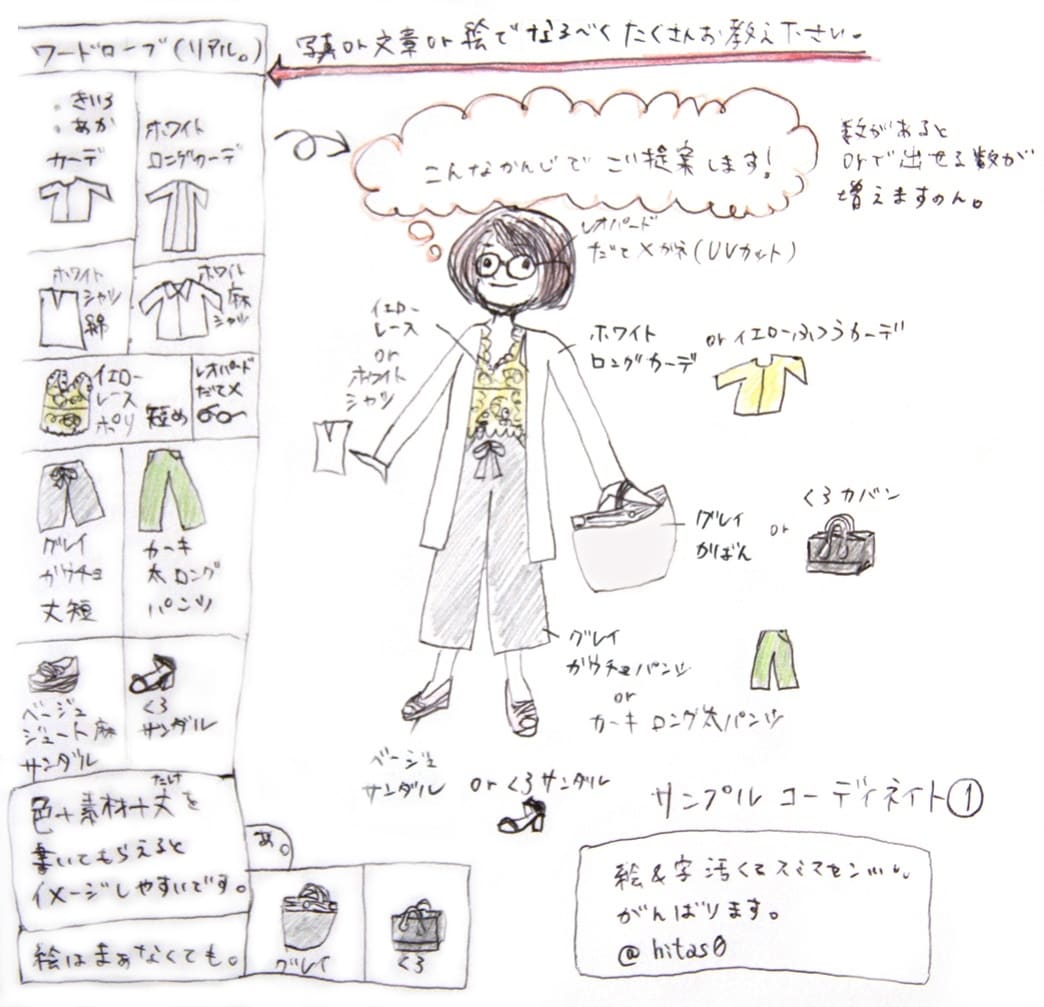 ワードローブ(リアル。)
写真or文章or絵でなるべくたくさんお教え下さい。
。きいろ
。あか
カーデ
ホワイト
ロングカーデ
こんなかんじでご提案します!
数があると
orで出せる数が
増えますのん。
ホワイト
シャツ
綿
ホワイト
麻
シャツ
イエロー
レース
ポリ
短め
レオパード
だてメ
グレイ
ガウチョ
丈短
カーキ
太ロング
パンツ
ベージュ
ジュート麻
サンダル
くろ
サンダル
たけ
色+素材+丈を
書いてもらえると
イメージしやすいです。
絵はまぁなくても。
あ。
グレイ
くろ
レオパード
だてメガネ(UVカット)
イエロー
レース
or
ホワイト
シャツ
ホワイト
ロングカーデ
orイエローふつうカーデ
グレイ
かばん
or
くろカバン
グレイ
ガウチョパンツ
or
カーキロング太パンツ
ベージュ
サンダル
orくろサンダル
サンプルコーディネイト①
絵&字汚くてスミマセン…。
がんばります。
@hitas0